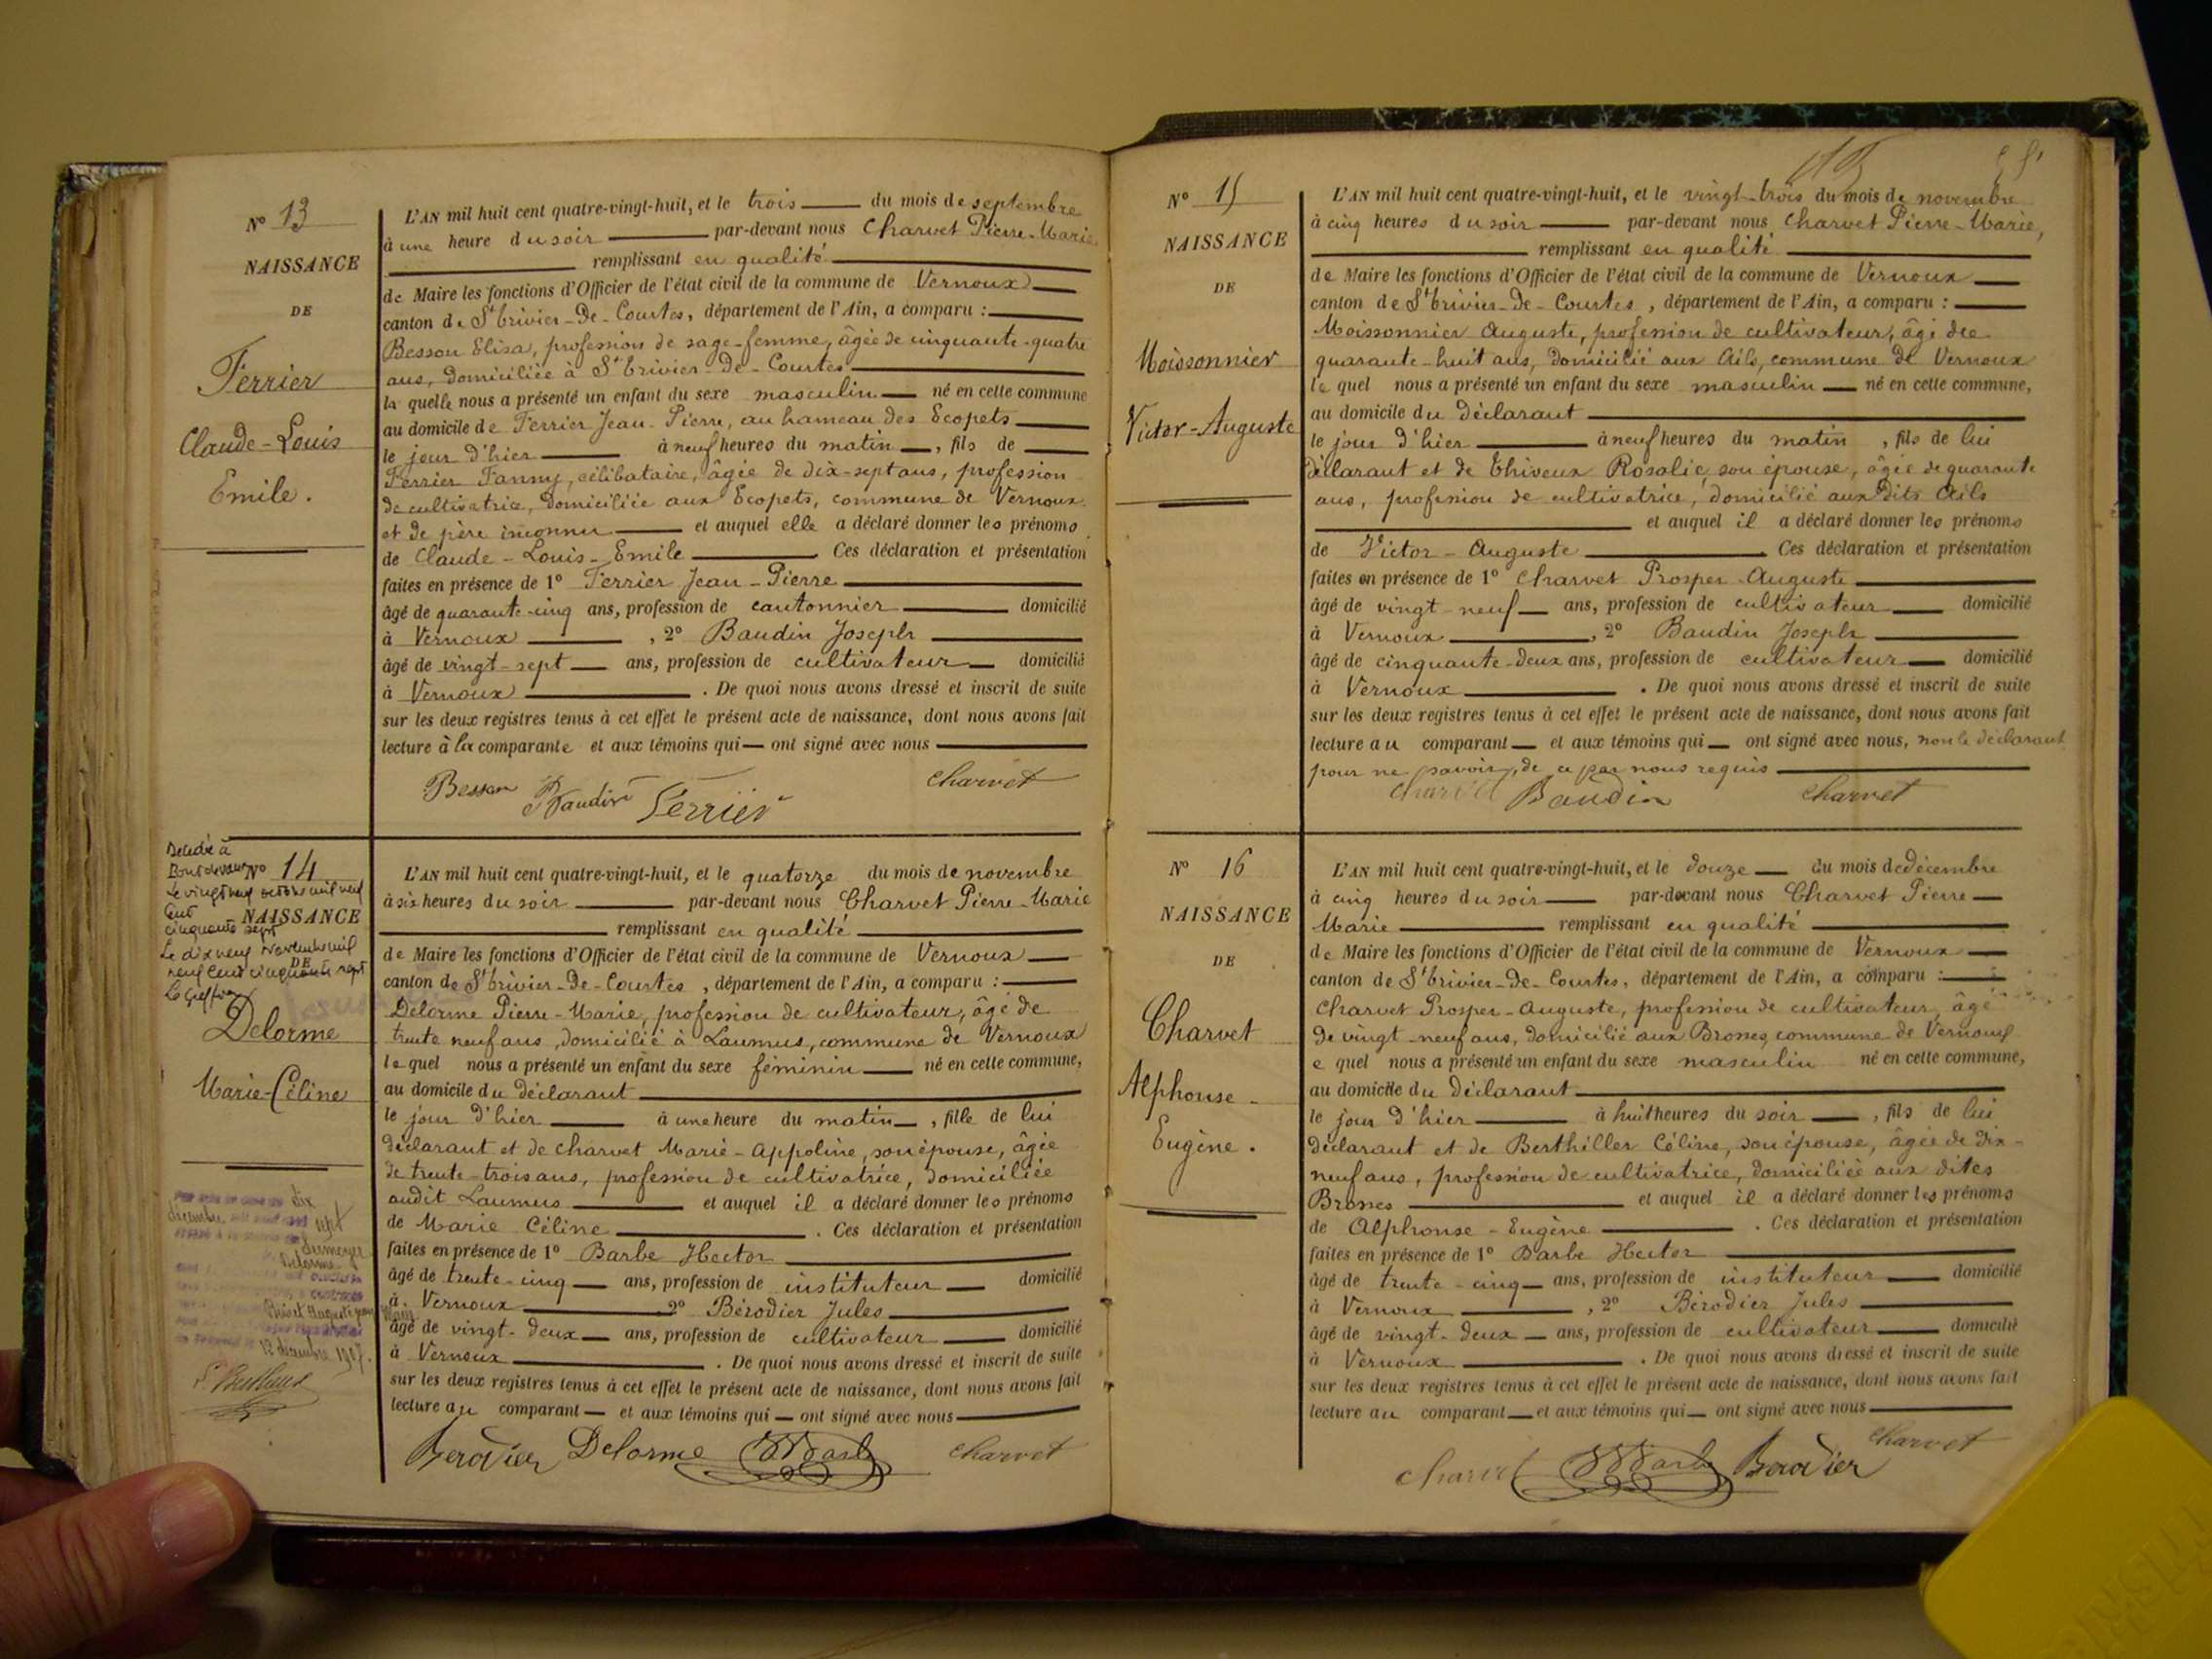 N° 13
NAISSANCE
DE
Ferrier
Claude-Louis
Emile.
L'AN mil huit cent quatre-vingt-huit, et le trois du mois de septembre
à une heure du soir par-devant nous Charvet Pierre-Marie
remplissant en qualité
de Maire les fonctions d'Officier de l'état civil de la commune de Vernoux
canton de St Trivier-De-Courtes, département de l'Ain, a comparu :
Besson Elisa, profession de sage-femme, âgée de cinquante-quatre
ans, domiciliée à St Trivier-De-Courtes
la quelle nous a présenté un enfant du sexe masculin né en cette commune
au domicile de Ferrier Jean-Pierre, au hameau des Ecopets
le jour d'hier à neuf heures du matin, fils de
Ferrier Fanny, célibataire, âgée de dix-sept ans, profession
de cultivatrice, domiciliée aux Ecopets, commune de Vernoux
et de père inconnu et auquel elle a déclaré donner les prénoms
de Claude-Louis-Emile Ces déclaration et présentation
faites en présence de 1° Ferrier Jean-Pierre
âgé de quarante-cinq ans, profession de cantonnier domicilié
à Vernoux, 2° Baudin Joseph
âgé de vingt-sept ans, profession de cultivateur domicilié
à Vernoux. De quoi nous avons dressé et inscrit de suite
sur les deux registres tenus à cet effet le présent acte de naissance, dont nous avons fait
lecture à la comparante et aux témoins qui ont signé avec nous
Besson Baudin Ferrier Charvet
Décédée à
Le vingt neuf octobre mil neuf
cent
cinquante sept
Le dix neuf Novembre mil
neuf cent cinquante sept
Le Greffier
N° 14
NAISSANCE
DE
Delorme
Marie-Céline
dix
décembre mil neuf cent sept
Delorme
12 décembre 1907.
L'AN mil huit cent quatre-vingt-huit, et le quatorze du mois de novembre
à six heures du soir par-devant nous Charvet Pierre-Marie
remplissant en qualité
de Maire les fonctions d'Officier de l'état civil de la commune de Vernoux
canton de St Trivier-De-Courtes, département de l'Ain, a comparu :
Delorme Pierre-Marie, profession de cultivateur, âgé de
trente neuf ans, domicilié à Laumus, commune de Vernoux
le quel nous a présenté un enfant du sexe féminin né en cette commune,
au domicile du déclarant
le jour d'hier à une heure du matin, fille de lui
déclarant et de Charvet Marie-Appoline, son épouse, âgée
de trente-trois ans, profession de cultivatrice, domiciliée
audit Laumus et auquel il a déclaré donner les prénoms
de Marie Céline. Ces déclaration et présentation
faites en présence de 1° Barbe Hector
âgé de trente-cinq ans, profession de instituteur domicilié
à Vernoux 2° Bérodier Jules
âgé de vingt-deux ans, profession de cultivateur domicilié
à Vernoux. De quoi nous avons dressé et inscrit de suite
sur les deux registres tenus à cet effet le présent acte de naissance, dont nous avons fait
lecture au comparant et aux témoins qui ont signé avec nous
Berodier Delorme H Barbe Charvet
N° 15
NAISSANCE
DE
Moissonnier
Victor-Auguste
L'AN mil huit cent quatre-vingt-huit, et le vingt-trois du mois de novembre
à cinq heures du soir par-devant nous Charvet Pierre-Marie,
remplissant en qualité
de Maire les fonctions d'Officier de l'état civil de la commune de Vernoux
canton de St Trivier-De-Courtes, département de l'Ain, a comparu :
Moissonnier Auguste, profession de cultivateur, âgé de
quarante-huit ans, domicilié aux Ails, commune de Vernoux
le quel nous a présenté un enfant du sexe masculin né en cette commune,
au domicile du déclarant
le jour d'hier à neuf heures du matin, fils de lui
déclarant et de Thiveux Rosalie, son épouse, âgée de quarante
ans, profession de cultivatrice, domicilié aux dits Ails
et auquel il a déclaré donner les prénoms
de Victor-Auguste. Ces déclaration et présentation
faites en présence de 1° Charvet Prosper-Auguste
âgé de vingt-neuf ans, profession de cultivateur domicilié
à Vernoux, 2° Baudin Joseph
âgé de cinquante-deux ans, profession de cultivateur domicilié
à Vernoux. De quoi nous avons dressé et inscrit de suite
sur les deux registres tenus à cet effet le présent acte de naissance, dont nous avons fait
lecture au comparant et aux témoins qui ont signé avec nous, non le déclarant
pour ne savoir, de ce par nous requis
Charvet Baudin Charvet
N° 16
NAISSANCE
DE
Charvet
Alphonse-
Eugène.
L'AN mil huit cent quatre-vingt-huit, et le douze du mois de décembre
à cinq heures du soir par-devant nous Charvet Pierre
Marie remplissant en qualité
de Maire les fonctions d'Officier de l'état civil de la commune de Vernoux
canton de St Trivier-De-Courtes, département de l'Ain, a comparu :
Charvet Prosper-Auguste, profession de cultivateur, âgé
de vingt-neuf ans, domicilié aux Brosses, commune de Vernoux
e quel nous a présenté un enfant du sexe masculin né en cette commune,
au domicile du déclarant
le jour d'hier à huit heures du soir, fils de lui
déclarant et de Berthiller Céline, son épouse, âgée de dix-
neuf ans, profession de cultivatrice, domiciliée aux dites
Brosses et auquel il a déclaré donner les prénoms
de Alphonse-Eugène. Ces déclaration et présentation
faites en présence de 1° Barbe Hector
âgé de trente-cinq ans, profession de instituteur domicilié
à Vernoux, 2° Bérodier Jules
âgé de vingt-deux ans, profession de cultivateur domicilié
à Vernoux. De quoi nous avons dressé et inscrit de suite
sur les deux registres tenus à cet effet le présent acte de naissance, dont nous avons fait
lecture au comparant et aux témoins qui ont signé avec nous
Charvet H Barbe Berodier Charvet